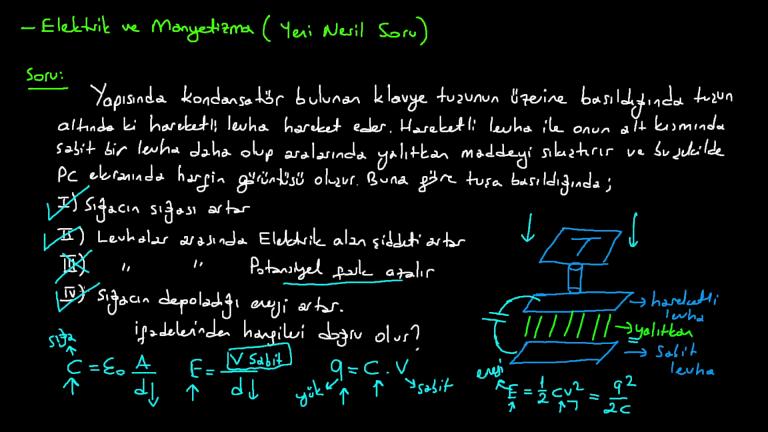 - Elektrik ve Manyetizma ( Yeni Nesil Soru )
Soru:
Yapısında kondansatör bulunan klavye tuşunun üzerine basıldığında tuşun
altında ki hareketli levha hareket eder. Hareketli levha ile onun alt kısmında
sabit bir levha daha olup aralarında yalıtkan maddeyi sıkıştırır ve bu şekilde
PC ekranında harfin görüntüsü oluşur. Buna göre tuşa basıldığında ;
I) Sığacın sığası artar
II) Levhalar arasında Elektrik alan şiddeti artar
III) " " Potansiyel fark azalır
IV) Sığacın depoladığı enerji artar.
ifadelerinden hangileri doğru olur?
T
hareketli
levha
yalıtkan
sabit
levha
sığa
C = ε₀ A/d↓
E = V sabit/d↓
q = C . V
yük
sabit
enerji
E = 1/2 CV² = q²/2C